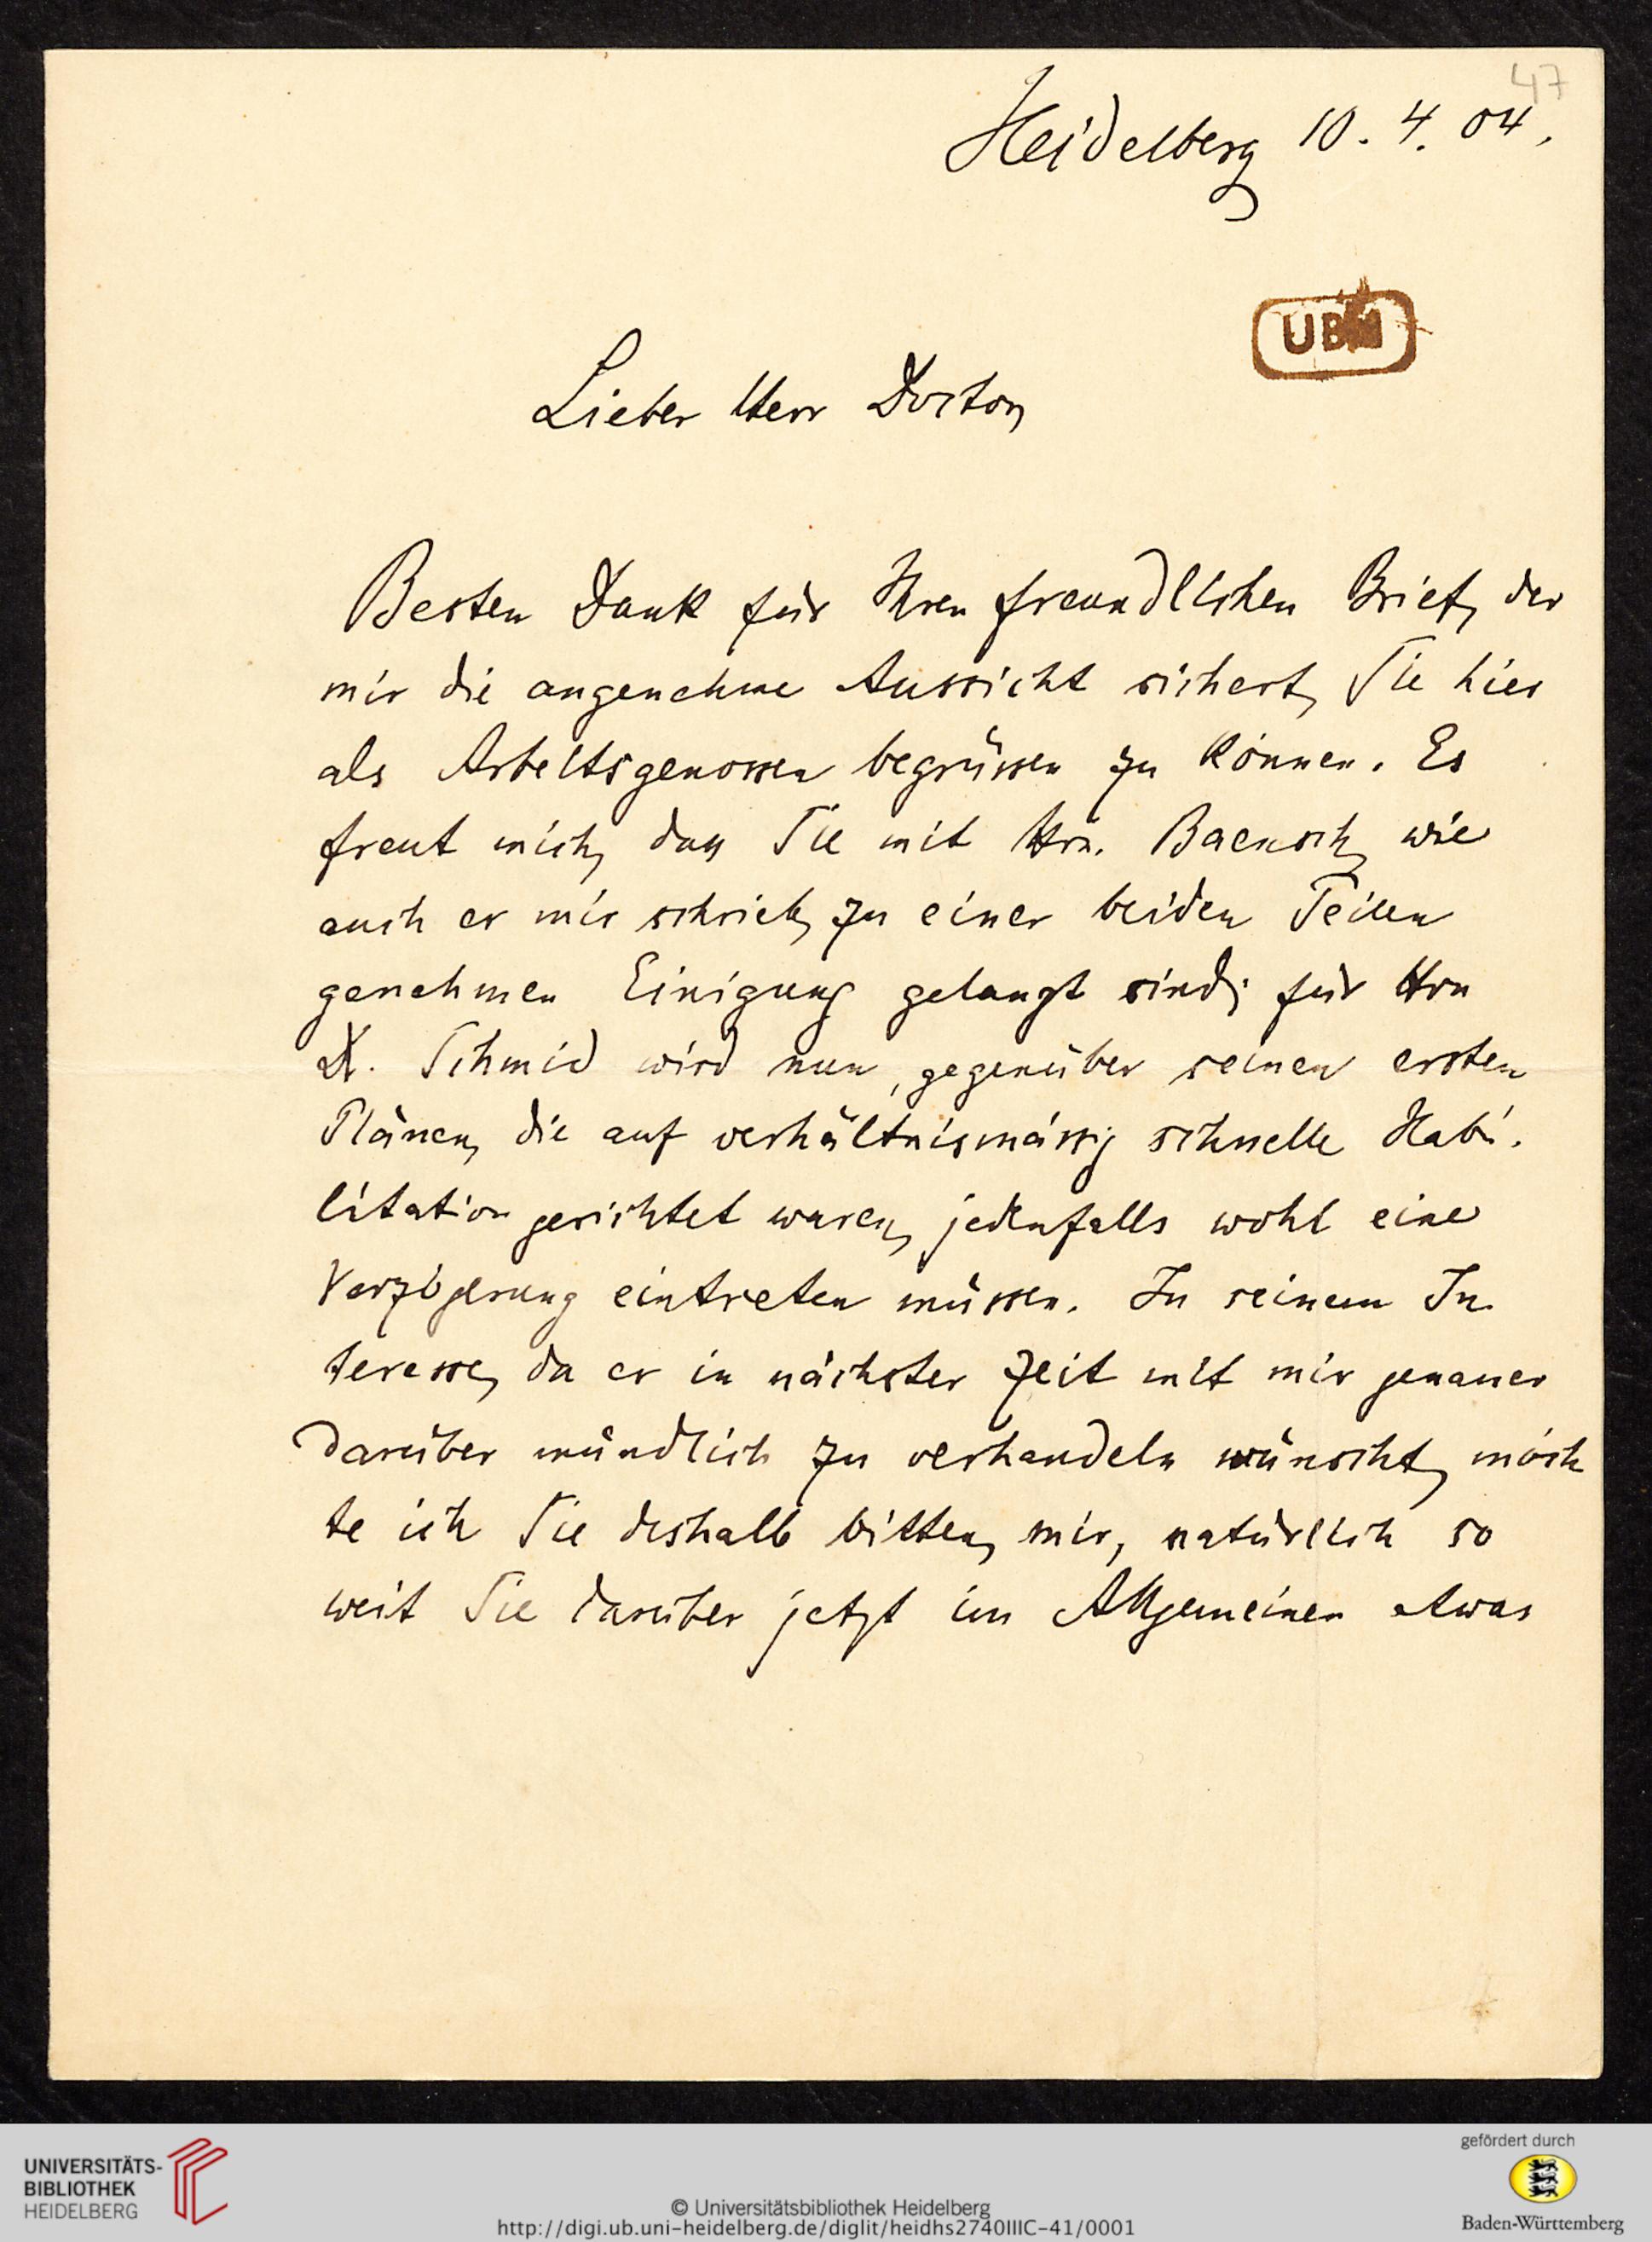 47
Heidelberg 10. 4. 04.
UBH
Lieber Herr Doctor,
Besten Dank für Ihren freundlichen Brief, der
mir die angenehme Aussicht sichert, Sie hier
als Arbeitsgenossen begrüssen zu können. Es
freut mich, dass Sie mit Hrn. Baensch, wie
auch er mir schrieb, zu einer beiden Teilen
genehmen Einigung gelangt sind; für Hrn
Dr. Schmid wird nun, gegenüber seinen ersten
Plänen, die auf verhältnismässig schnelle Habi-
litation gerichtet waren, jedenfalls wohl eine
Verzögerung eintreten müssen. In seinem In-
teresse, da er in nächster Zeit mit mir genauer
darüber mündlich zu verhandeln wünscht, möch
te ich Sie deshalb bitten, mir, natürlich so
weit Sie darüber jetzt im Allgemeinen etwas
UNIVERSITÄTS-
BIBLIOTHEK
HEIDELBERG
© Universitätsbibliothek Heidelberg
http://digi.ub.uni-heidelberg.de/diglit/heidhs2740IIIC-41/0001
gefördert durch
Baden-Württemberg